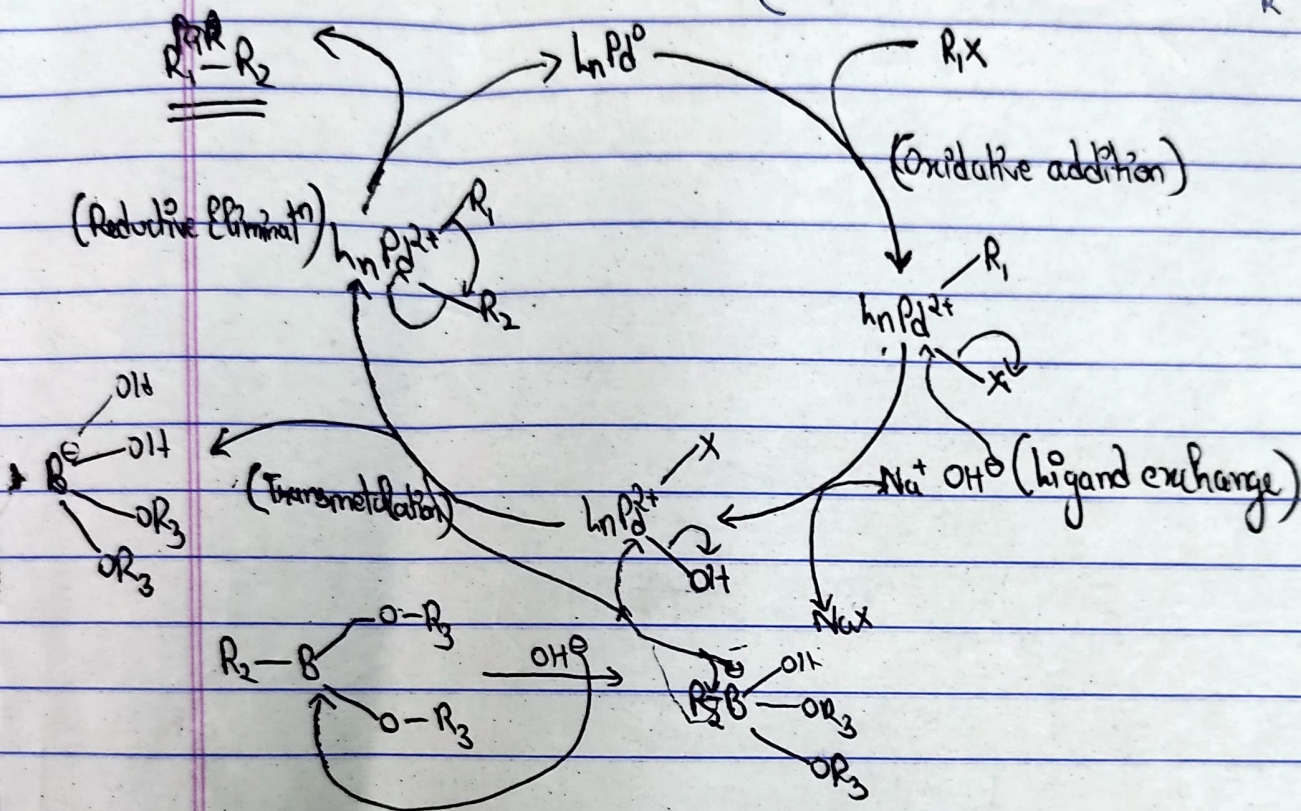 R₁-R₂
LnPd⁰
R₁X
(Oxidative addition)
(Reductive Eliminatⁿ)
LnPd²⁺
R₁
R₂
LnPd²⁺
R₁
X
Na⁺ OH⊖ (Ligand exchange)
NaX
LnPd²⁺
X
OH
(Transmetalation)
B⊖
OH
OH
OR₃
OR₃
R₂-B
O-R₃
O-R₃
OH⊖
R₂-B⊖
OH
OR₃
OR₃